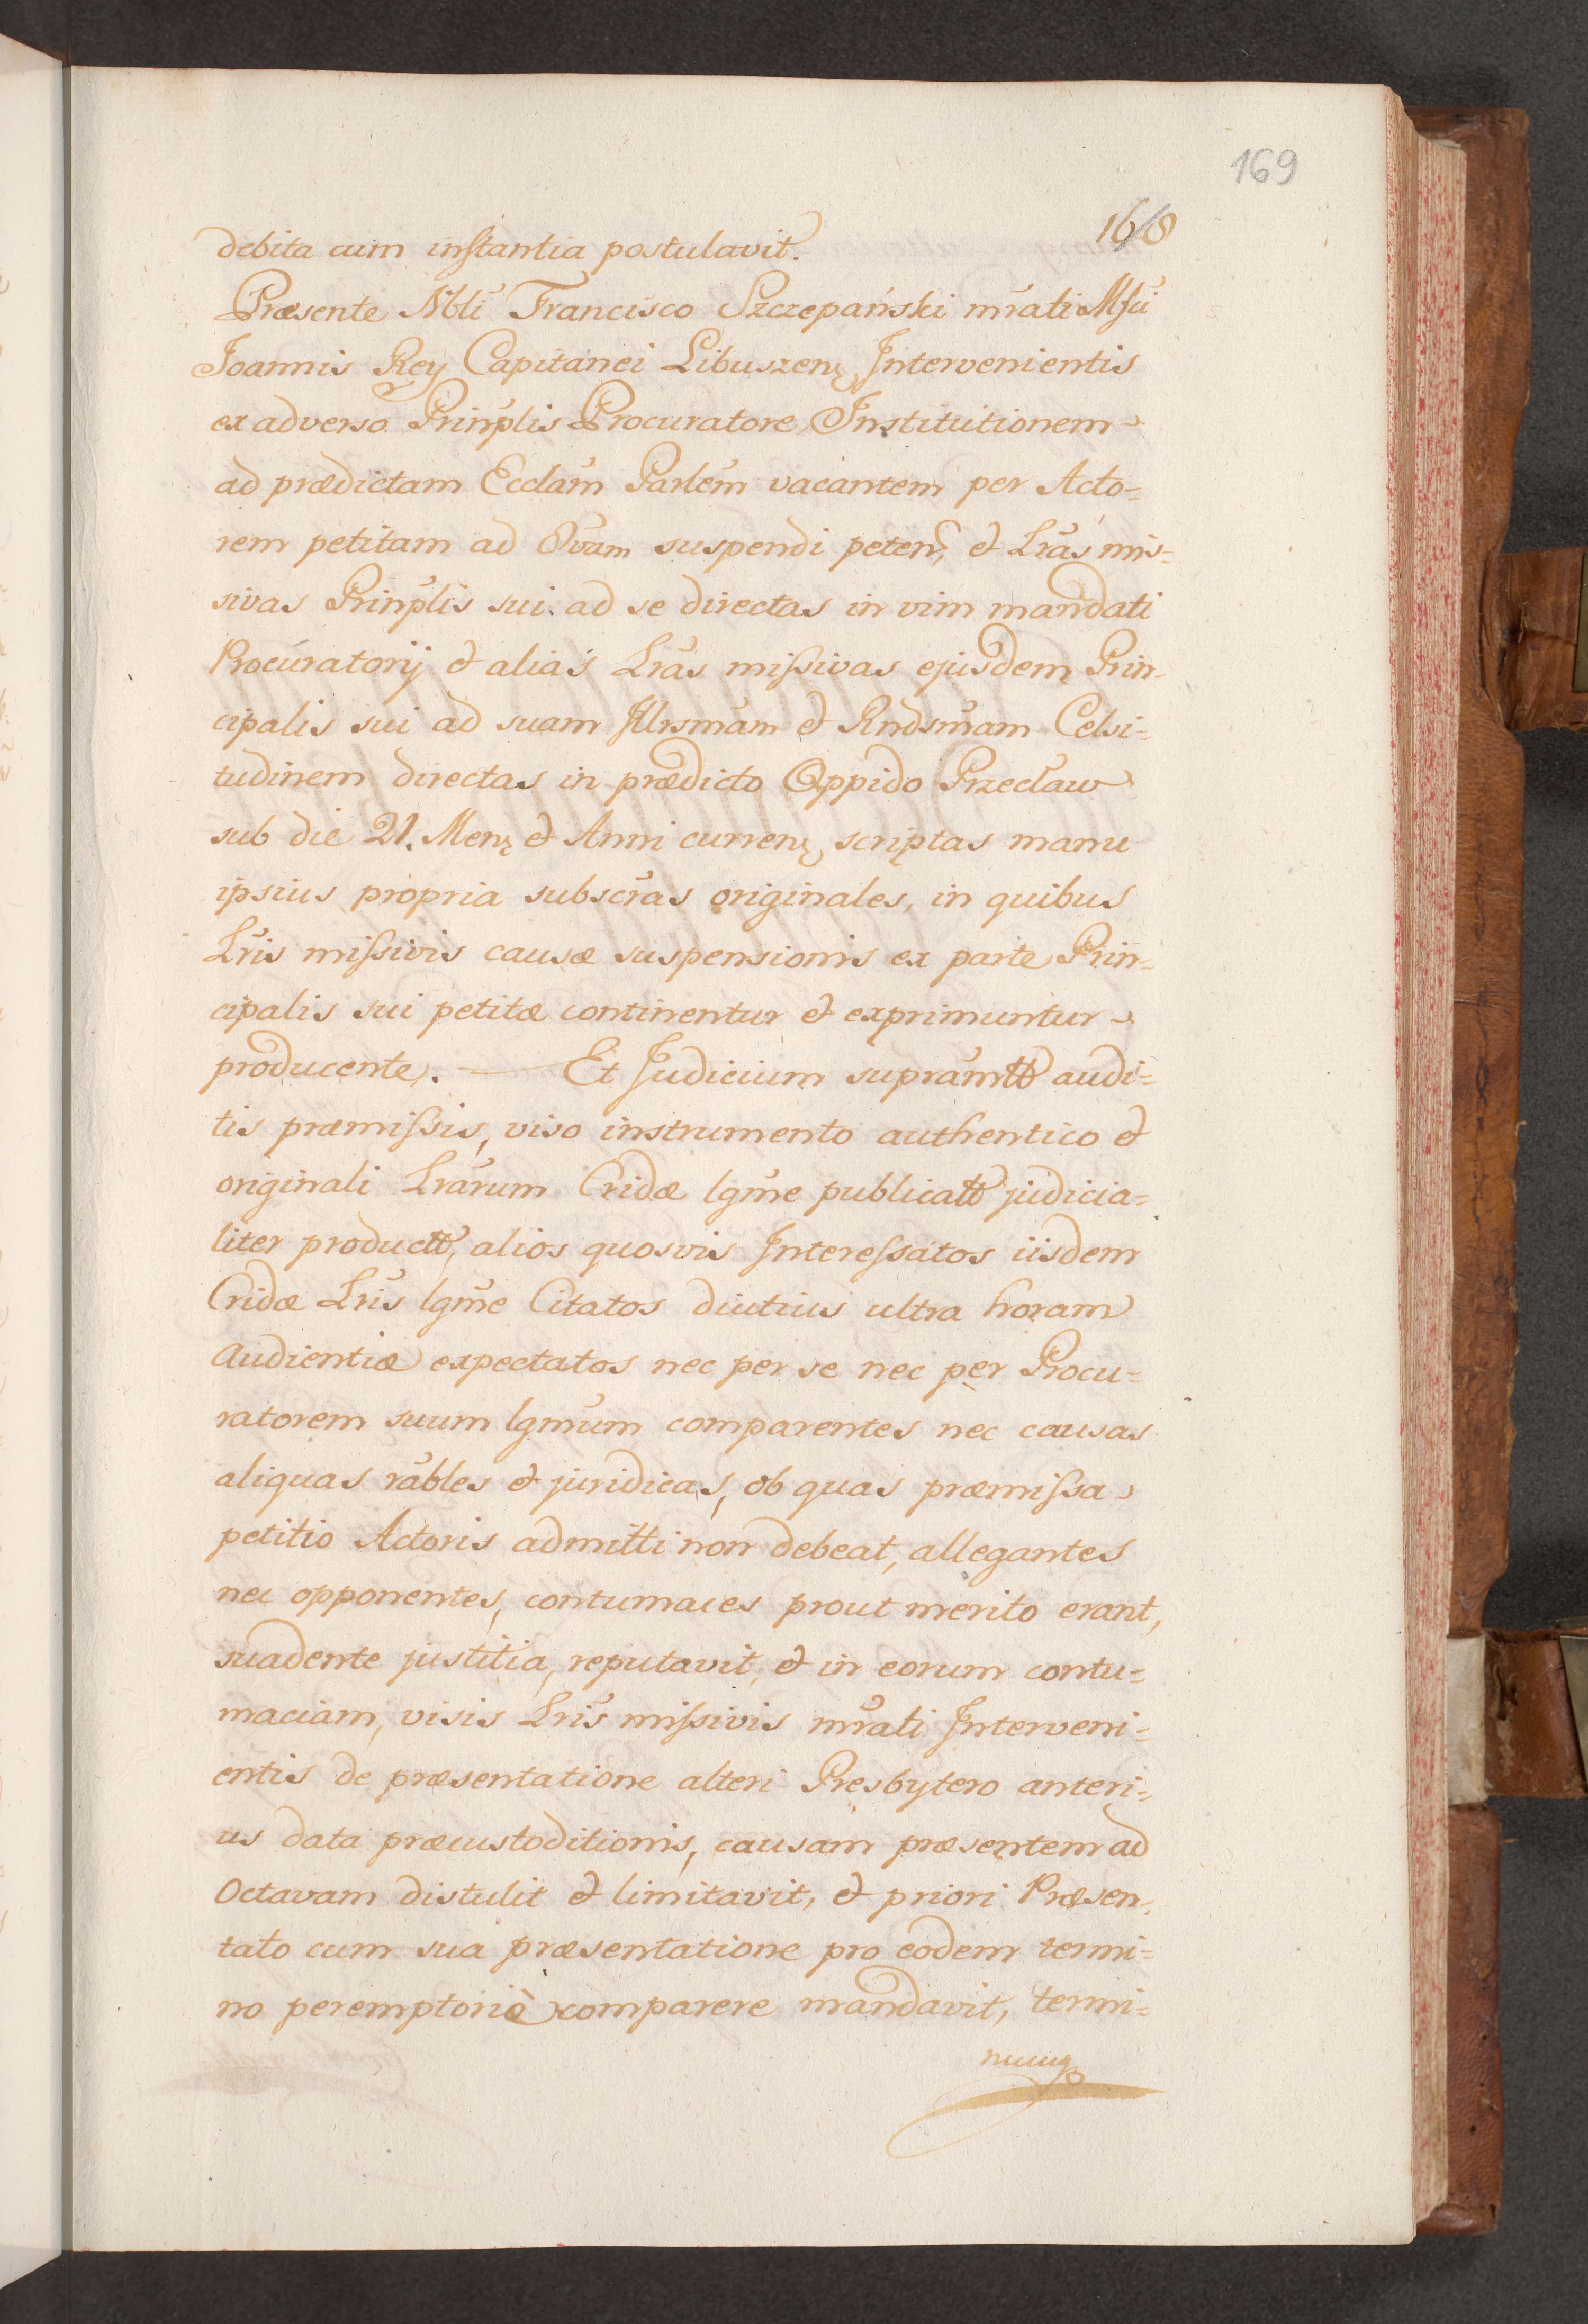 169
168
debita cum instantia postulavit.
Præsente Nbli Francisco Szczepański mrati Msci
Joannis Rey Capitanei Libuszenę Intervenientis
ex adverso Prinplis Procuratore Institutionem
ad prædictam Eccłam Parlem vacantem per Acto=
rem petitam ad 8vam suspendi peten, et Lras mis=
sivas Prinplis sui ad se directas in vim mandati
Procuratorij et alias Lras missivas ejusdem Prin=
cipalis sui ad suam Illrsmam et Rndsmam Celsi=
tudinem directas in prædicto Oppido Przecław
sub die 21. Menę et Anni currenę scriptas manu
ipsius propria subscras originales, in quibus
Lris missivis causæ suspensionis ex parte Prin=
cipalis sui petitæ continentur et exprimuntur
producente. — Et Judicium supramtt audi=
tis præmissis, viso instrumento authentico et
originali Lrarum Cridæ lgme publicatt judicia=
liter productt, alios quosvis Interessatos iisdem
Cridæ Lris lgme Citatos diutius ultra horam
Audientiæ expectatos nec per se nec per Procu=
ratorem suum lgmum comparentes nec causas
aliquas rables et juridicas, ob quas præmissa
petitio Actoris admitti non debeat, allegantes
nec opponentes, contumaces prout merito erant,
suadente justitia, reputavit, et in eorum contu=
maciam, visis Lris missivis mrati Interveni=
entis de præsentatione alteri Presbytero anteri=
us data præcustoditionis, causam præsentem ad
Octavam distulit et limitavit, et priori Præsen=
tato cum sua præsentatione pro eodem termi=
no peremptoriè comparere mandavit, termi=
numq